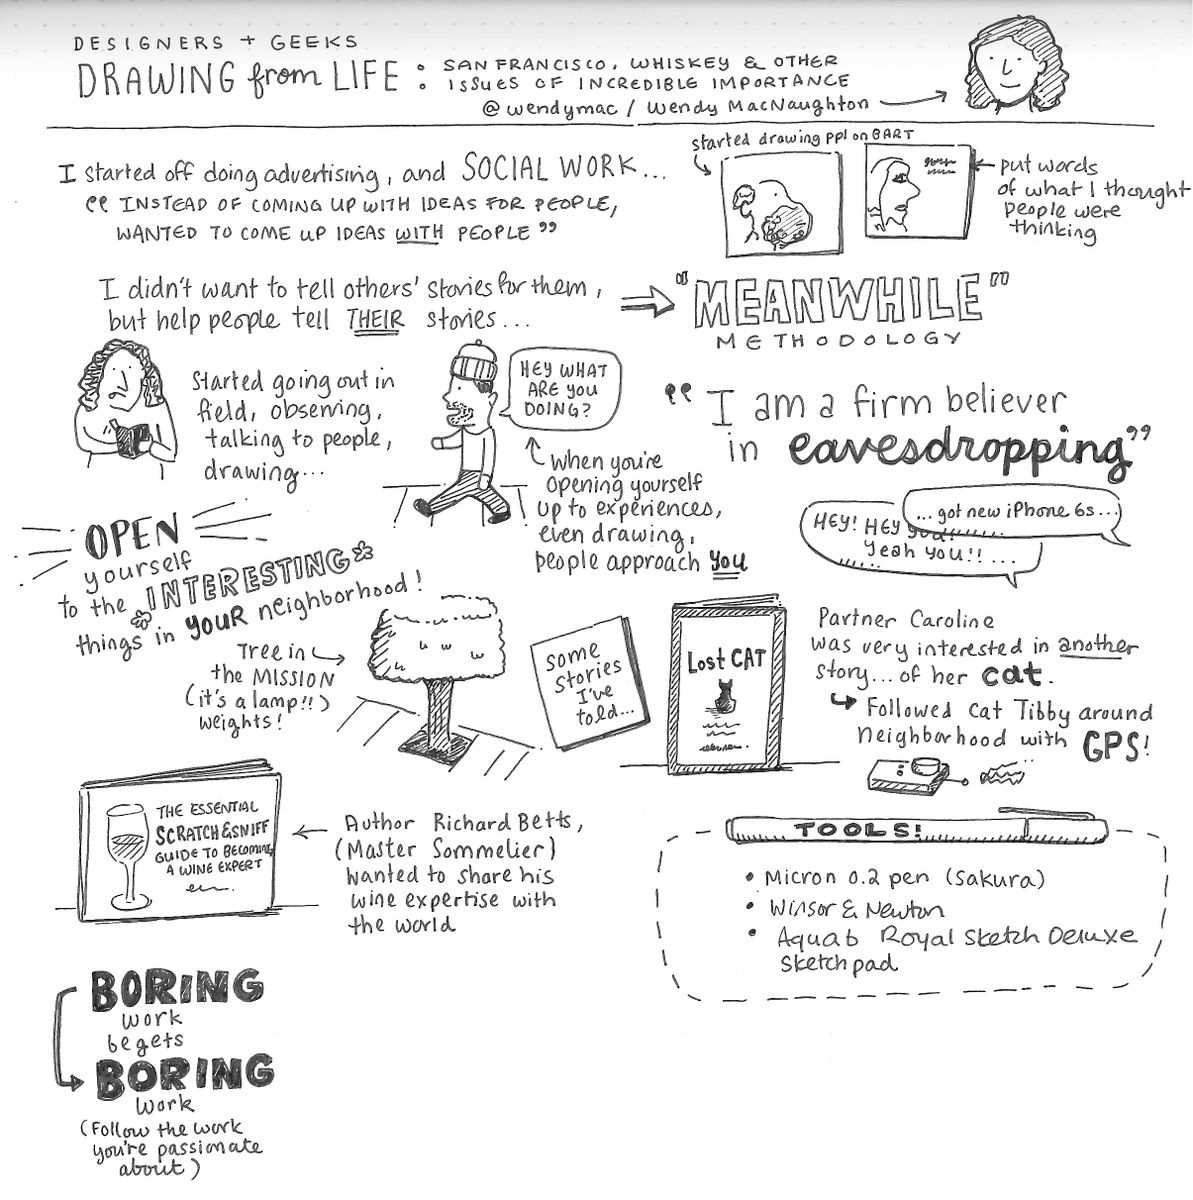 DESIGNERS + GEEKS
DRAWING from LIFE : SAN FRANCISCO, WHISKEY & OTHER
ISSUES OF INCREDIBLE IMPORTANCE
@wendymac / Wendy MacNaughton
I started off doing advertising, and SOCIAL WORK...
"INSTEAD OF COMING UP WITH IDEAS FOR PEOPLE,
WANTED TO COME UP IDEAS WITH PEOPLE"
started drawing ppl on BART
put words
of what I thought
people were
thinking
I didn't want to tell others' stories for them,
but help people tell THEIR stories...
"MEANWHILE"
METHODOLOGY
Started going out in
field, observing,
talking to people,
drawing...
HEY WHAT
ARE YOU
DOING?
When you're
opening yourself
up to experiences,
even drawing,
people approach you
"I am a firm believer
in eavesdropping"
HEY! HEY you!
Yeah you!!...
...got new iPhone 6s...
OPEN
yourself
to the *INTERESTING*
things in YOUR neighborhood!
Tree in
the MISSION
(it's a lamp!!)
weights!
some
stories
I've
told...
Lost CAT
Partner Caroline
was very interested in another
story... of her cat.
Followed Cat Tibby around
neighborhood with GPS!
THE ESSENTIAL
SCRATCH & SNIFF
GUIDE TO BECOMING
A WINE EXPERT
Author Richard Betts,
(Master Sommelier)
wanted to share his
wine expertise with
the world
TOOLS!
• Micron 0.2 pen (Sakura)
• Winsor & Newton
• Aquab Royal Sketch Deluxe
sketch pad
BORING
work
begets
BORING
work
(Follow the work
you're passionate
about)